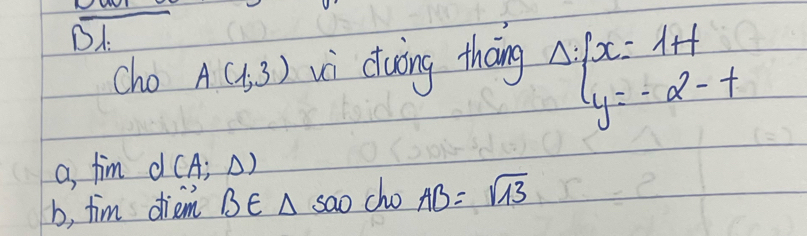 B1:
Cho A(1;3) và đường thẳng Δ: { x = 1+t
y = -2-t
a, tìm d(A; Δ)
b, tìm điểm B ∈ Δ sao cho AB = √13